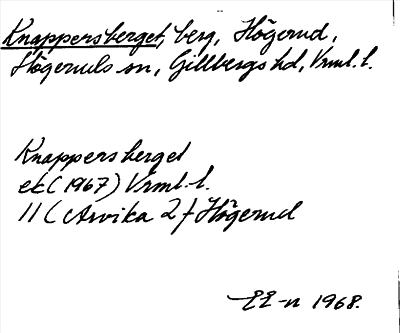 Knappersberget, berg, Högerud,
Högeruds sn, Gillbergs hd, Vrml. l.
Knappersberget
ek (1967) Vrml. l.
11 C Arvika 2 f Högerud
EE-n 1968.